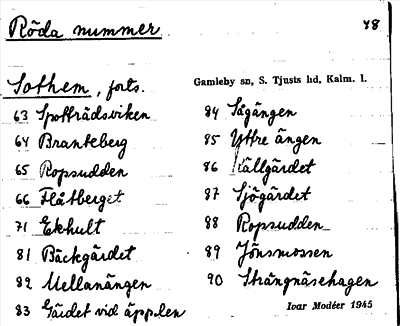 Röda nummer 78
Sothem, forts.
Gamleby sn, S. Tjusts hd, Kalm. l.
63 Spottrådsviken
64 Branteberg
65 Ropsudden
66 Flåtberget
71 Ekhult
81 Bäckgärdet
82 Mellanängen
83 Gärdet vid äpplen
84 Sågängen
85 Yttre ängen
86 Källgärdet
87 Sjögärdet
88 Ropsudden
89 Jönsmossen
90 Strängnäsehagen
Ivar Modéer 1945